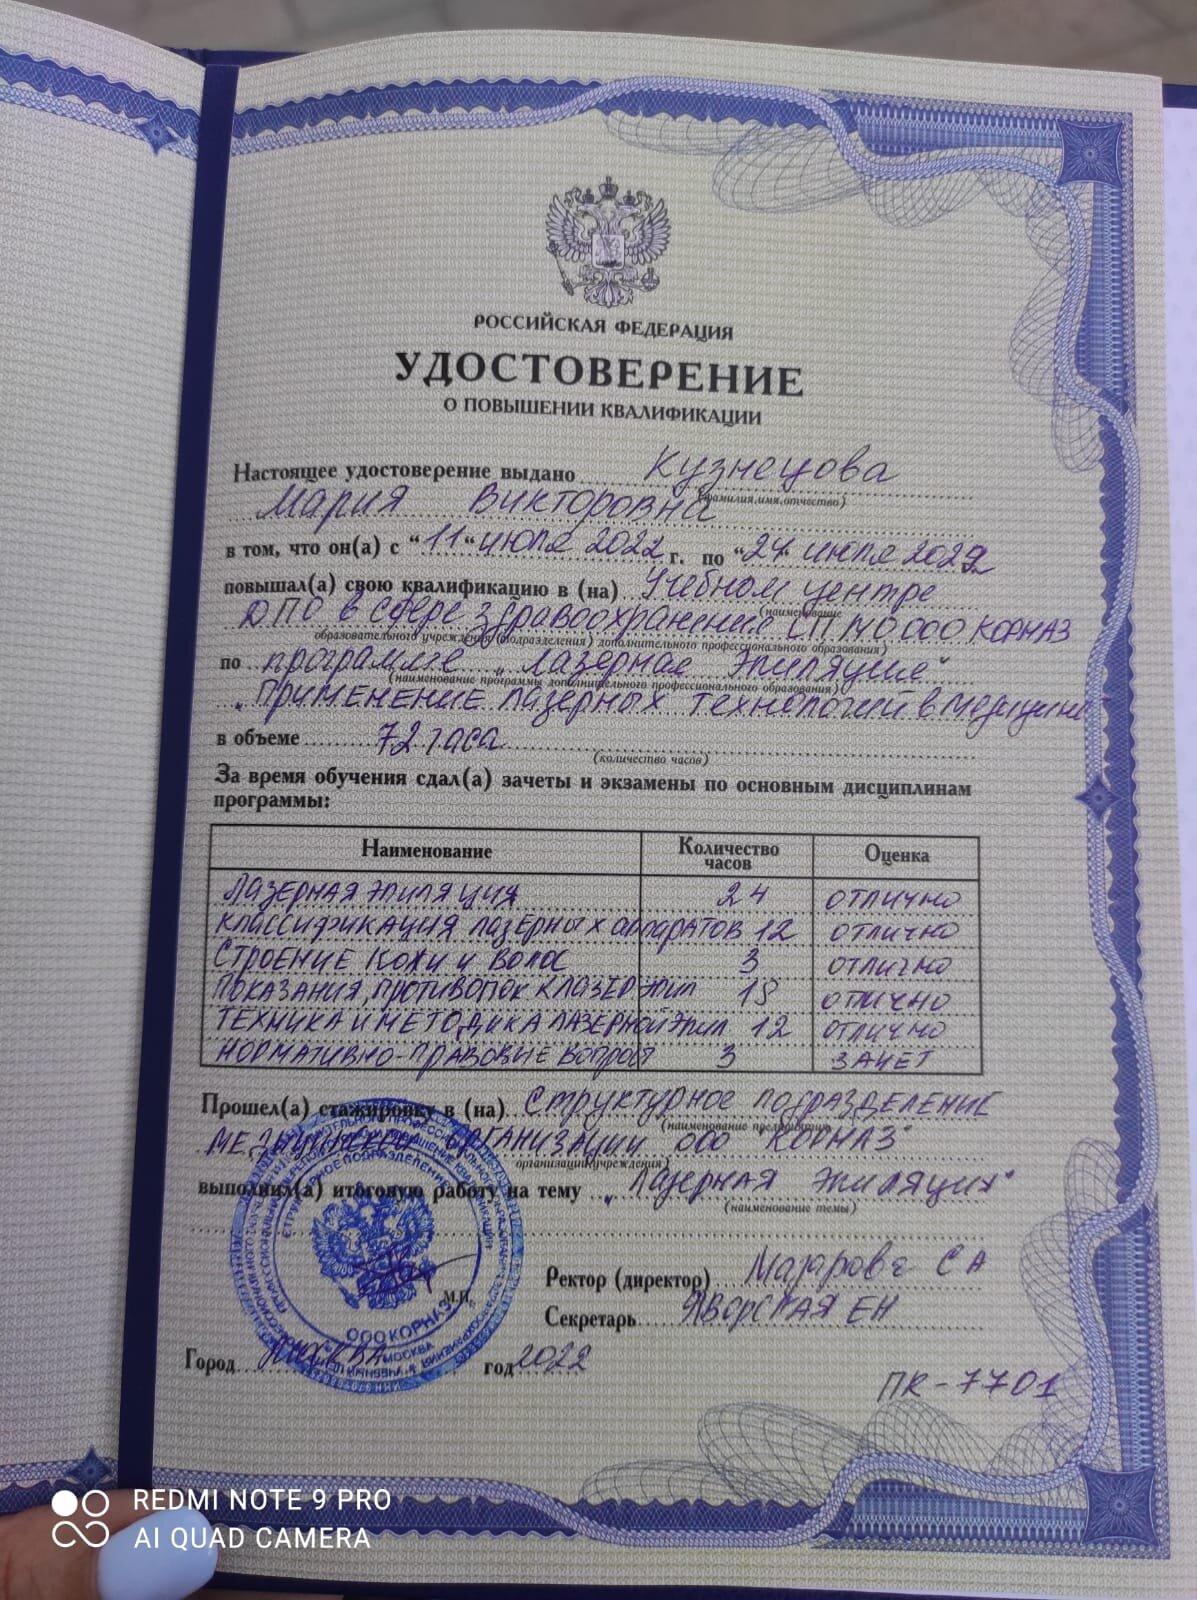 РОССИЙСКАЯ ФЕДЕРАЦИЯ
УДОСТОВЕРЕНИЕ
О ПОВЫШЕНИИ КВАЛИФИКАЦИИ
Настоящее удостоверение выдано Кузнецова
(фамилия, имя, отчество)
Мария Викторовна
в том, что он(а) с "11" июля 2022 г. по "24" июля 2022
повышал(а) свою квалификацию в (на) Учебном центре
(наименование
ДПО в сфере здравоохранения СП МО ООО КОРНАЗ
образовательного учреждения (подразделения) дополнительного профессионального образования)
по программе "Лазерная Эпиляция"
(наименование программы дополнительного профессионального образования)
"Применение лазерных технологий в медицине
в объеме 72 часа
(количество часов)
За время обучения сдал(а) зачеты и экзамены по основным дисциплинам
программы:
Наименование Количество часов Оценка
ЛАЗЕРНАЯ ЭПИЛЯЦИЯ 24 ОТЛИЧНО
КЛАССИФИКАЦИЯ ЛАЗЕРНЫХ АППАРАТОВ 12 ОТЛИЧНО
СТРОЕНИЕ КОЖИ И ВОЛОС 3 ОТЛИЧНО
ПОКАЗАНИЯ, ПРОТИВОПОК К ЛАЗЕР ЭПИЛ 18 ОТЛИЧНО
ТЕХНИКА И МЕТОДИКА ЛАЗЕРНОЙ ЭПИЛ 12 ОТЛИЧНО
НОРМАТИВНО-ПРАВОВЫЕ ВОПРОСЫ 3 ЗАЧЕТ
Прошел(а) стажировку в (на) СТРУКТУРНОЕ ПОДРАЗДЕЛЕНИЕ
(наименование предприятия,
МЕДИЦИНСКОЙ ОРГАНИЗАЦИИ ООО "КОРНАЗ"
организации, учреждения)
выполнил(а) итоговую работу на тему "ЛАЗЕРНАЯ ЭПИЛЯЦИЯ"
(наименование темы)
СТРУКТУРНОЕ ПОДРАЗДЕЛЕНИЕ
ООО КОРНАЗ
МОСКВА
М.П.
Ректор (директор) С А
Секретарь ЯВОРСКАЯ ЕН
Город МОСКВА год 2022
ПК-7701
REDMI NOTE 9 PRO
AI QUAD CAMERA